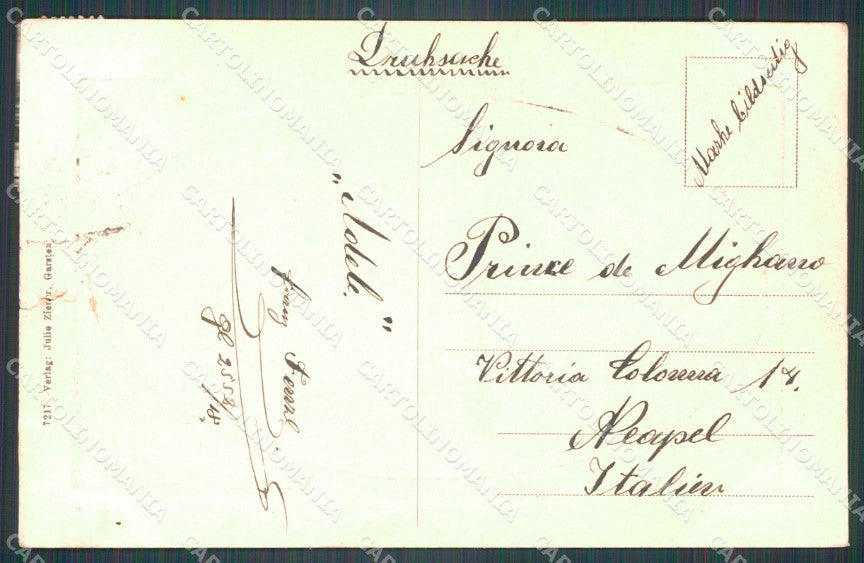 Druhsache
Marke bildseitig
Signora
Prinze de Mighano
Vittoria Colonna 14.
Neapel
Italien
"Adele."
7217 Verlag: Julie Zierer, Garsten
CARTOLINOMANIA